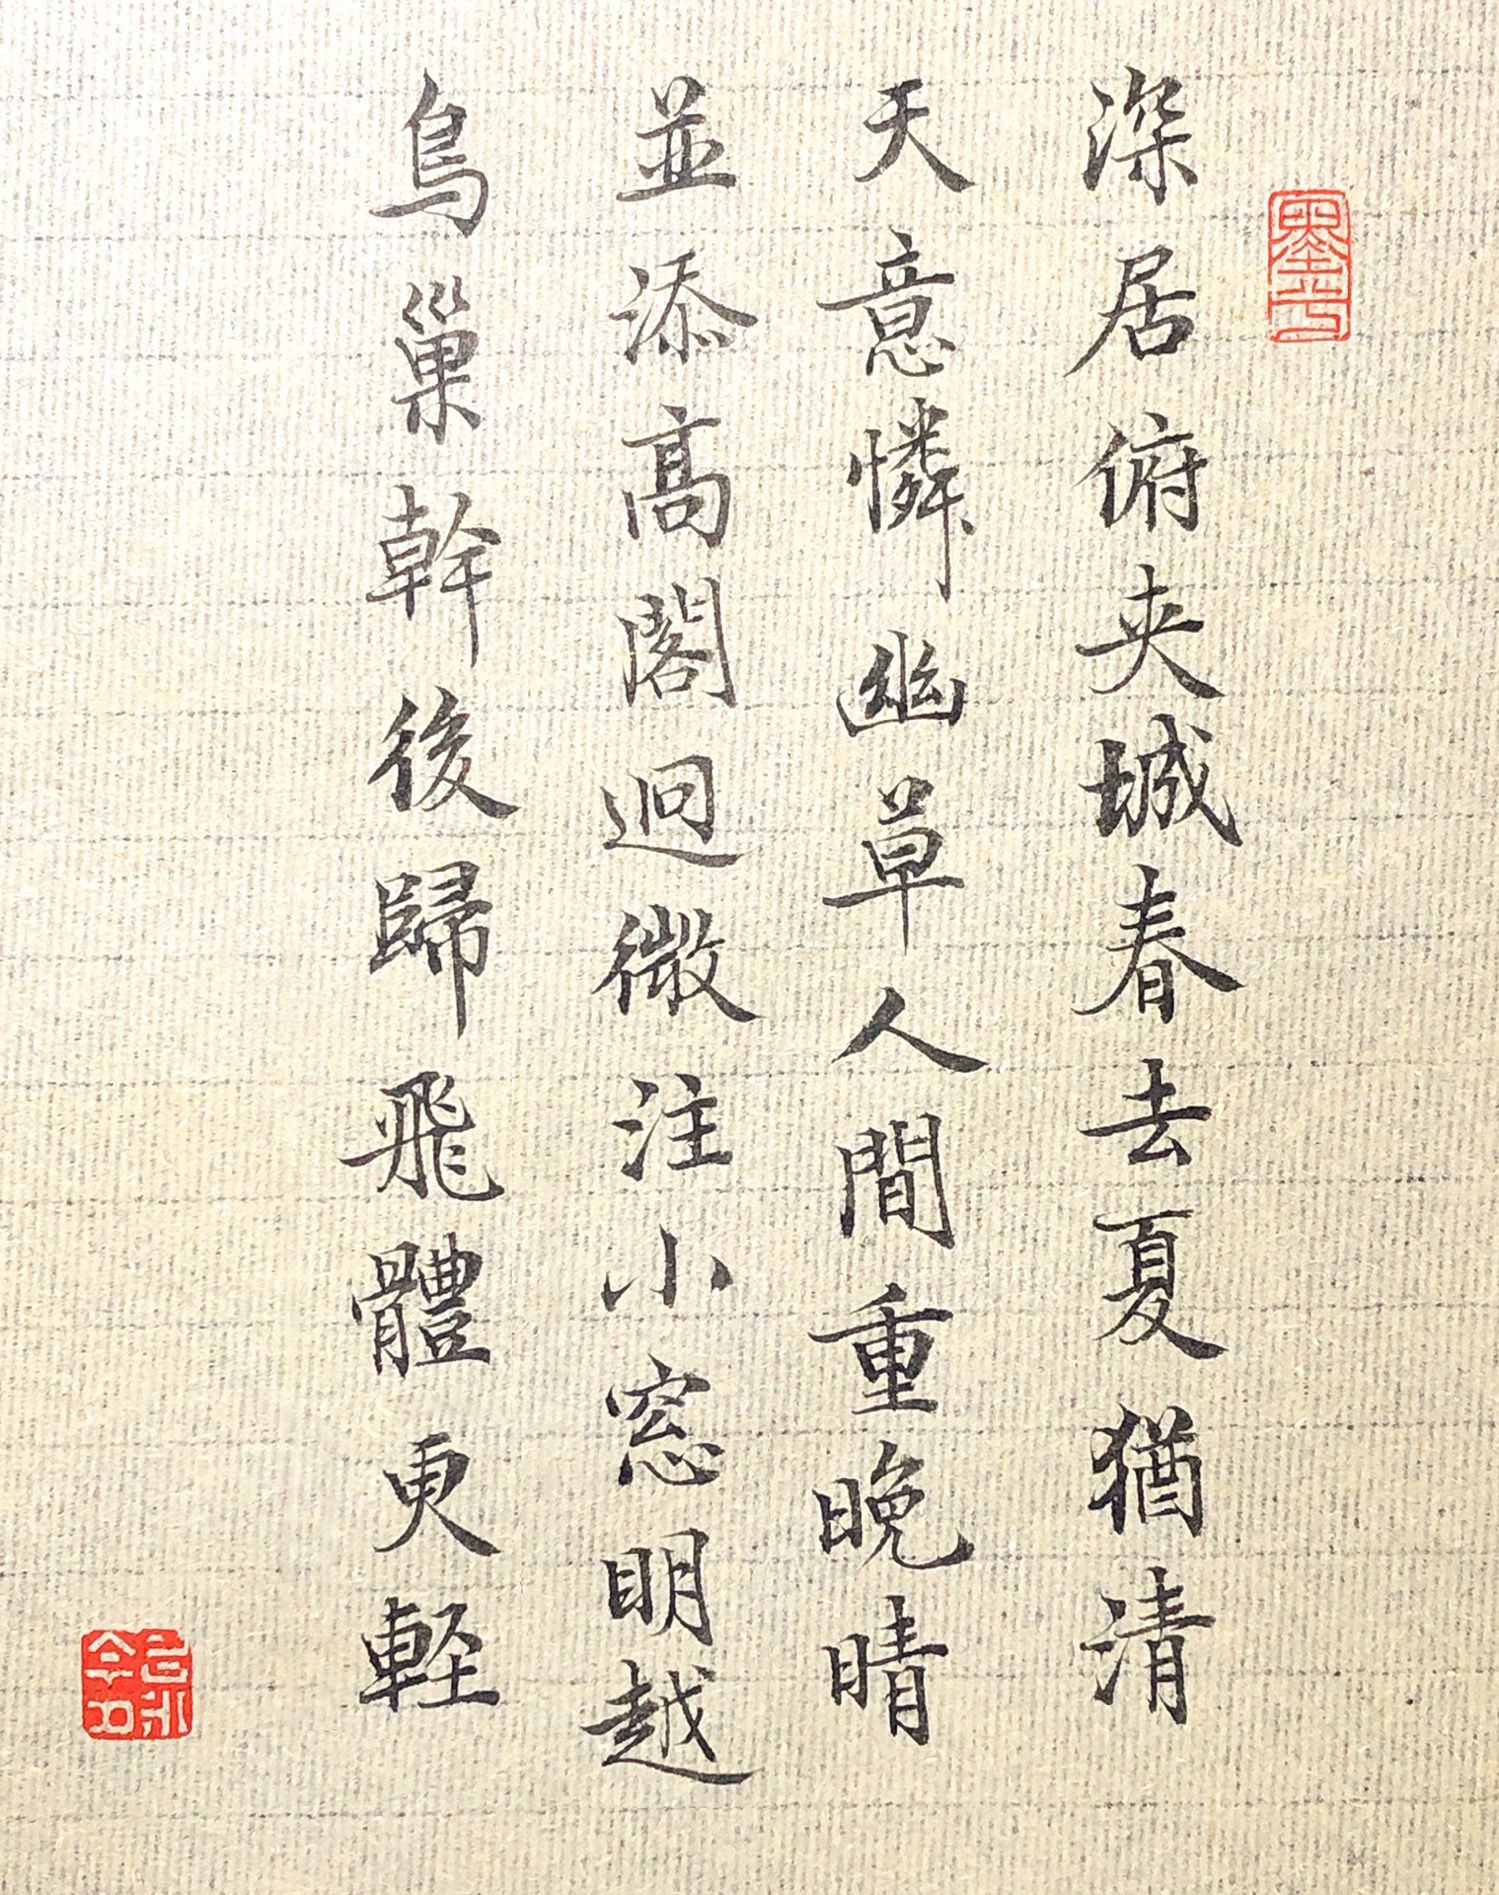 深居俯夾城春去夏猶清
天意憐幽草人間重晚晴
並添髙閣迥微注小窓明越
鳥巢幹後歸飛體更軽